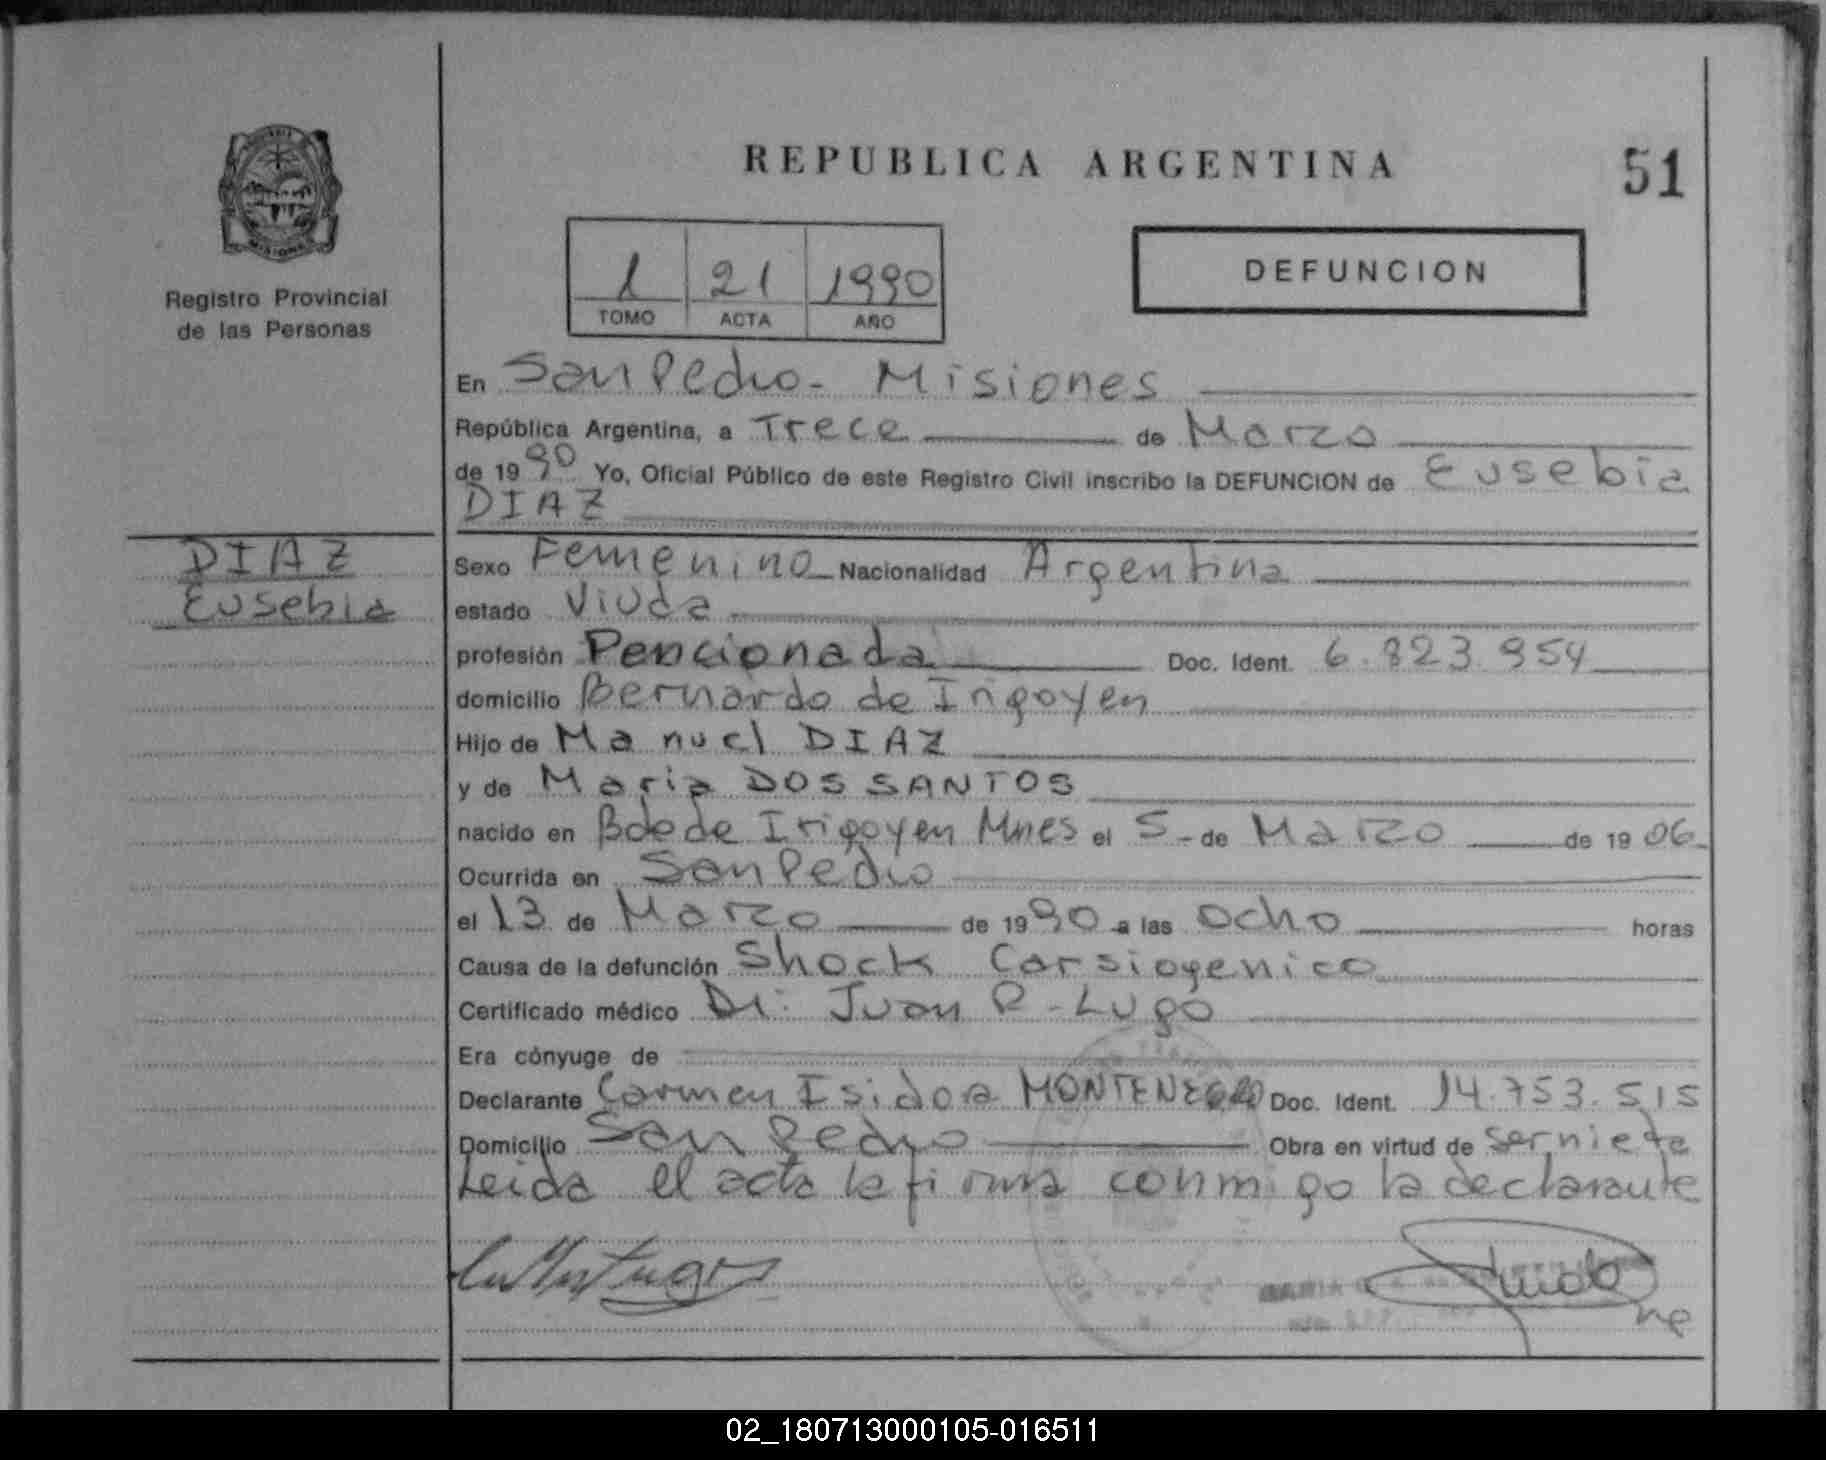 REPUBLICA ARGENTINA
51
MISIONES
Registro Provincial
de las Personas
1 21 1990
TOMO ACTA AÑO
DEFUNCION
En San Pedro - Misiones
República Argentina, a Trece de Marzo
de 1990 Yo, Oficial Público de este Registro Civil inscribo la DEFUNCION de Eusebia
DIAZ
DIAZ
Eusebia
Sexo Femenino Nacionalidad Argentina
estado Viuda
profesión Pencionada Doc. Ident. 6.823.954
domicilio Bernardo de Irigoyen
Hijo de Manuel DIAZ
y de Maria DOS SANTOS
nacido en Bdo de Irigoyen Mnes el 5 - de Marzo de 1906
Ocurrida en San Pedro
el 13 de Marzo de 1990 a las ocho horas
Causa de la defunción Shock Carsiogenico
Certificado médico Dr: Juan R - Lugo
Era cónyuge de
Declarante Carmen Isidora MONTENEGRO Doc. Ident. 14.753.515
Domicilio San Pedro Obra en virtud de ser nieta
Leida el acta la firma conmigo la declarante
02_180713000105-016511